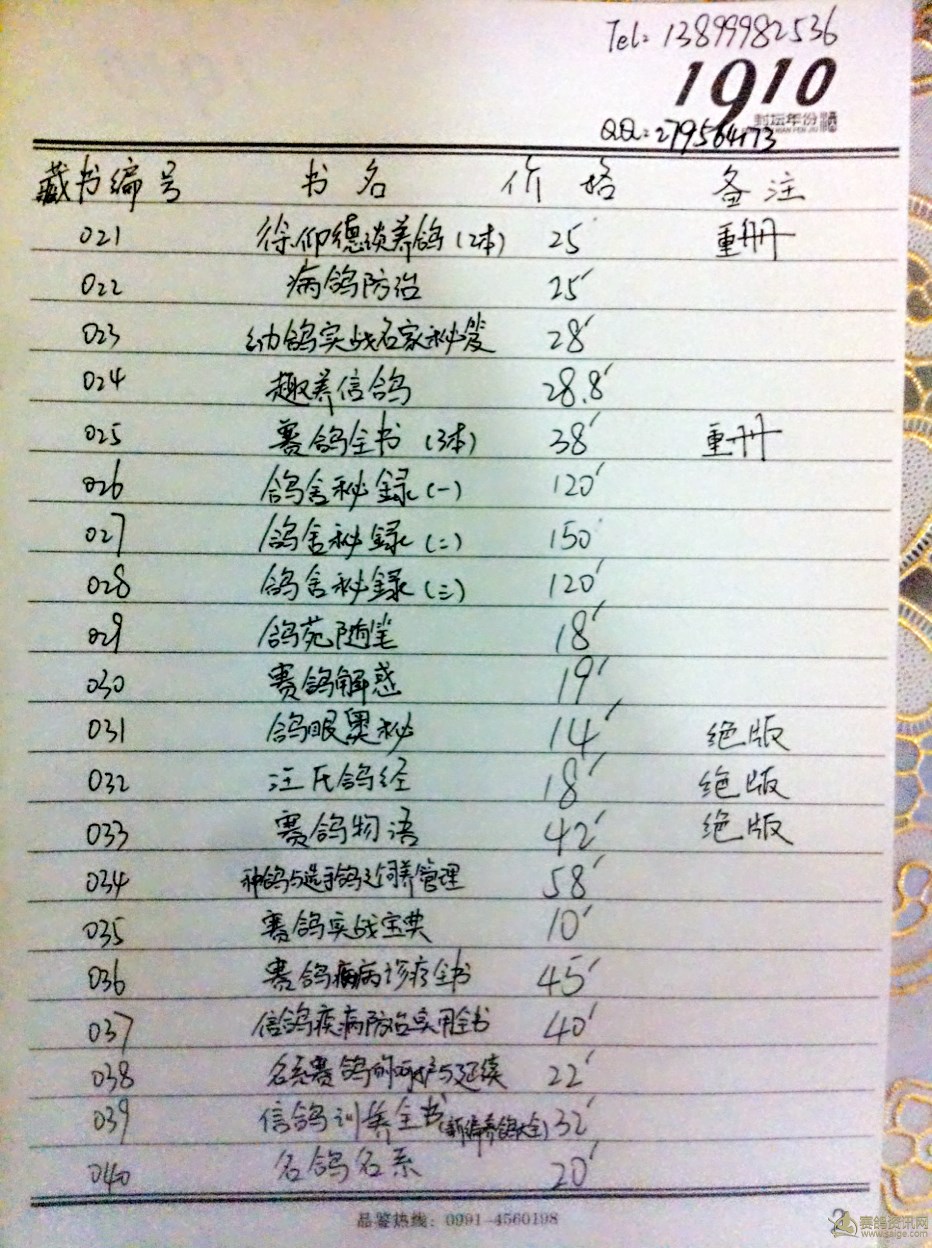 Tel: 13899982536
1910
封坛年份酒
QQ:279564173
藏书编号 书名 价格 备注
021 徐仰德谈养鸽(2本) 25 重册
022 病鸽防治 25
023 幼鸽实战名家秘笈 28
024 趣养信鸽 28.8
025 赛鸽全书(3本) 38 重册
026 鸽舍秘录(一) 120
027 鸽舍秘录(二) 150
028 鸽舍秘录(三) 120
029 鸽苑随笔 18
030 赛鸽解惑 19
031 鸽眼奥秘 14 绝版
032 汪氏鸽经 18 绝版
033 赛鸽物语 42 绝版
034 种鸽与选手鸽之饲养管理 58
035 赛鸽实战宝典 10
036 赛鸽病诊疗全书 45
037 信鸽疾病防治实用全书 40
038 名系赛鸽的与延续 22
039 信鸽训养全书(新编养鸽大全) 32
040 名鸽名系 20
品鉴热线:0991-4560198
2
赛鸽资讯网
www.saige.com